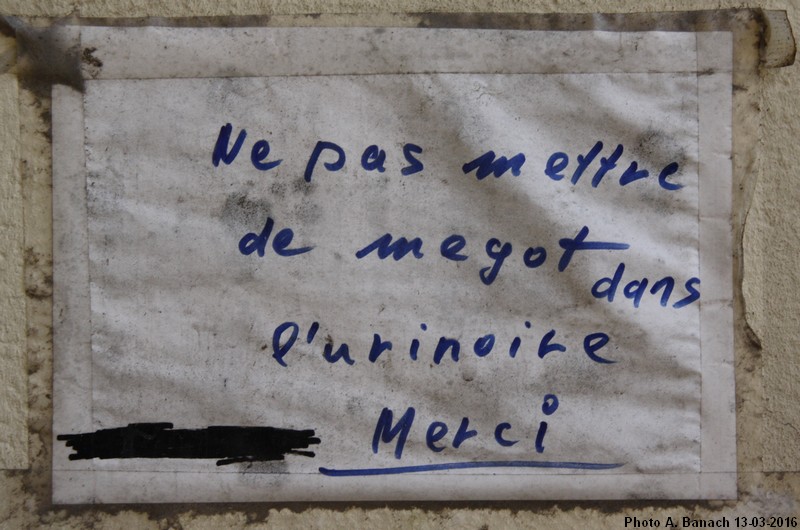 Ne pas mettre
de megot dans
l'urinoire
Merci
Photo A. Banach 13-03-2016